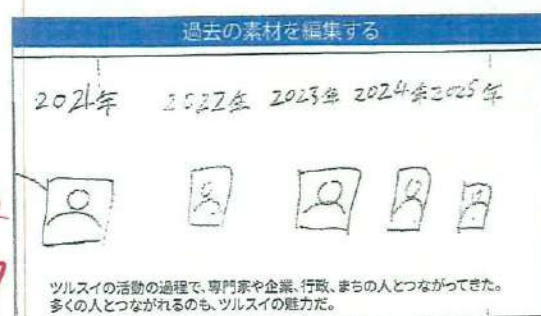 過去の素材を編集する
2021年 2022年 2023年 2024年 2025年
ツルスイの活動の過程で、専門家や企業、行政、まちの人とつながってきた。
多くの人とつながれるのも、ツルスイの魅力だ。